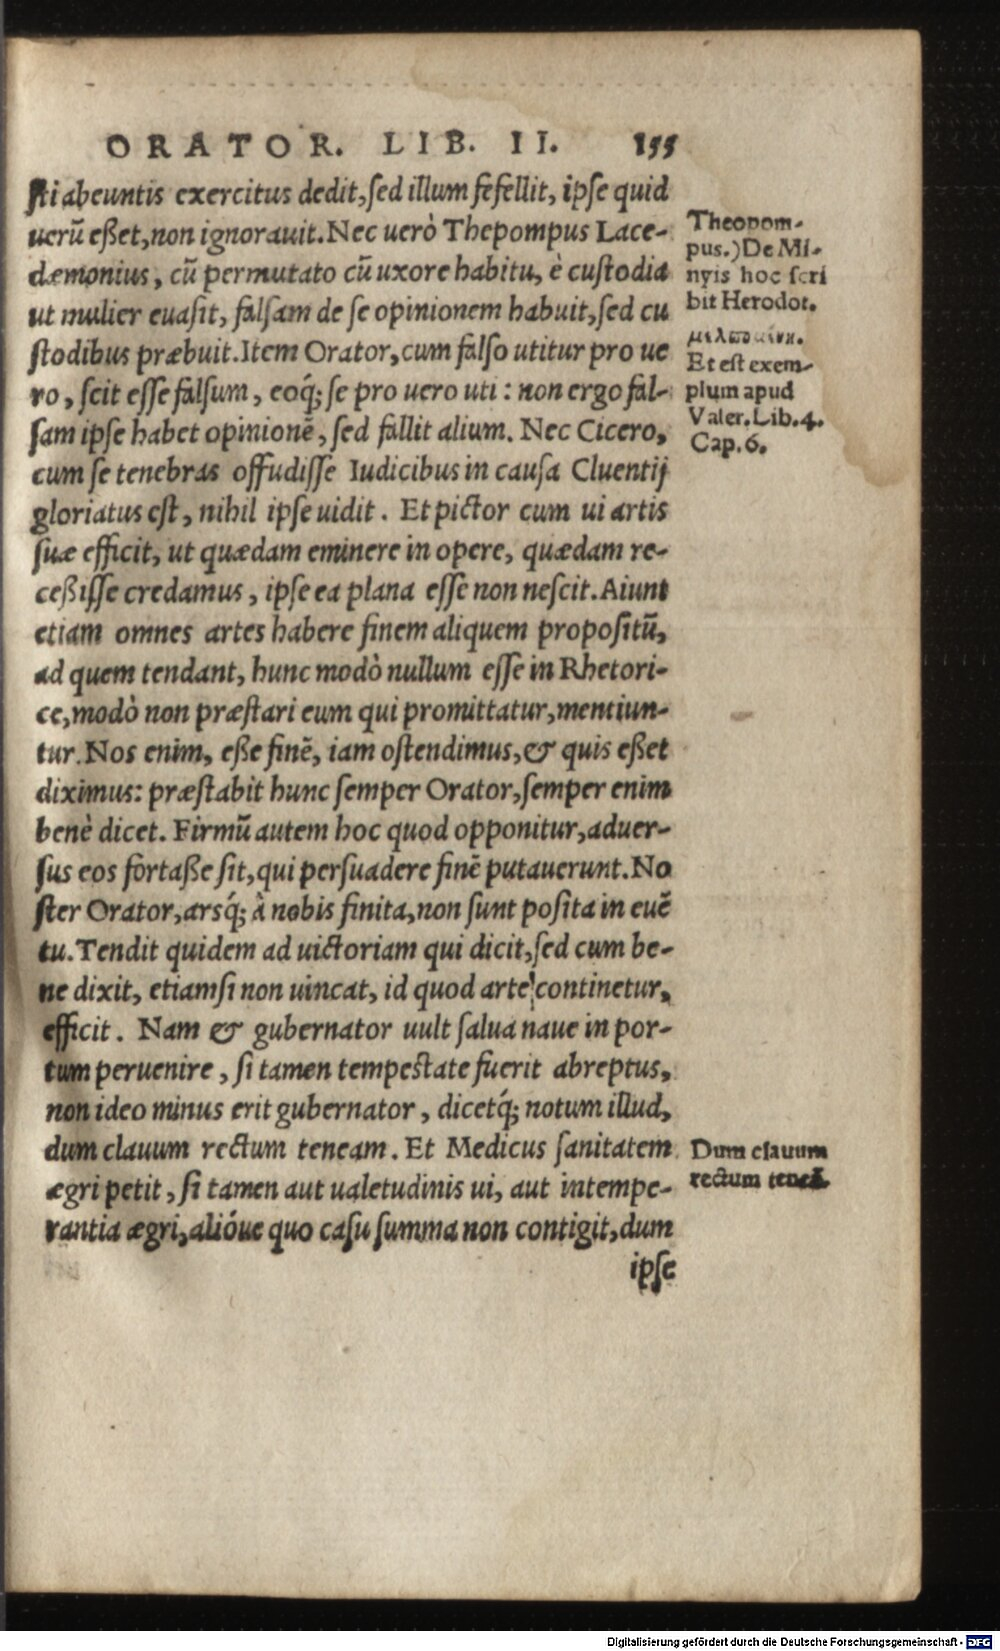 ORATOR. LIB. II. 155
sti abeuntis exercitus dedit, sed illum fefellit, ipse quid
uerũ eßet, non ignorauit. Nec uerò Thepompus Lace-
dæmonius, cũ permutato cũ uxore habitu, è custodia
ut mulier euasit, falsam de se opinionem habuit, sed cu
stodibus præbuit. Item Orator, cum falso utitur pro ue
ro, scit esse falsum, eoq́; se pro uero uti: non ergo fal-
sam ipse habet opinionẽ, sed fallit alium. Nec Cicero,
cum se tenebras offudisse Iudicibus in causa Cluentij
gloriatus est, nihil ipse uidit. Et pictor cum ui artis
suæ efficit, ut quædam eminere in opere, quædam re-
ceßisse credamus, ipse ea plana esse non nescit. Aiunt
etiam omnes artes habere finem aliquem propositũ,
ad quem tendant, hunc modò nullum esse in Rhetori-
ce, modò non præstari eum qui promittatur, mentiun-
tur. Nos enim, eße finẽ, iam ostendimus, & quis eßet
diximus: præstabit hunc semper Orator, semper enim
benè dicet. Firmũ autem hoc quod opponitur, aduer-
sus eos fortaße sit, qui persuadere finẽ putauerunt. No
ster Orator, arsq́; à nobis finita, non sunt posita in euẽ
tu. Tendit quidem ad uictoriam qui dicit, sed cum be-
ne dixit, etiamsi non uincat, id quod arte continetur,
efficit. Nam & gubernator uult salua naue in por-
tum peruenire, si tamen tempestate fuerit abreptus,
non ideo minus erit gubernator, dicetq́; notum illud,
dum clauum rectum teneam. Et Medicus sanitatem
ægri petit, si tamen aut ualetudinis ui, aut intempe-
rantia ægri, alióue quo casu summa non contigit, dum
ipse
Theopom-
pus.) De Mi-
nyis hoc scri
bit Herodot.
Et est exem-
plum apud
Valer. Lib. 4.
Cap. 6.
Dum clauum
rectum teneã.
Digitalisierung gefördert durch die Deutsche Forschungsgemeinschaft - DFG